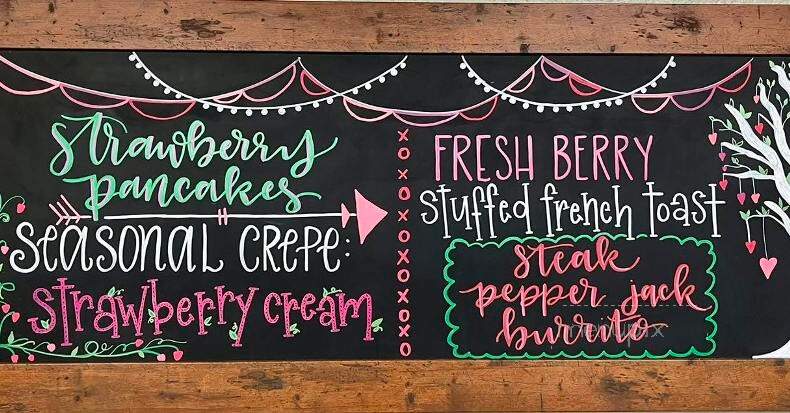 strawberry
pancakes
SEASONAL CREPE:
strawberry cream
x
o
x
o
x
o
x
o
x
o
x
o
FRESH BERRY
stuffed french toast
steak
pepper jack
burrito